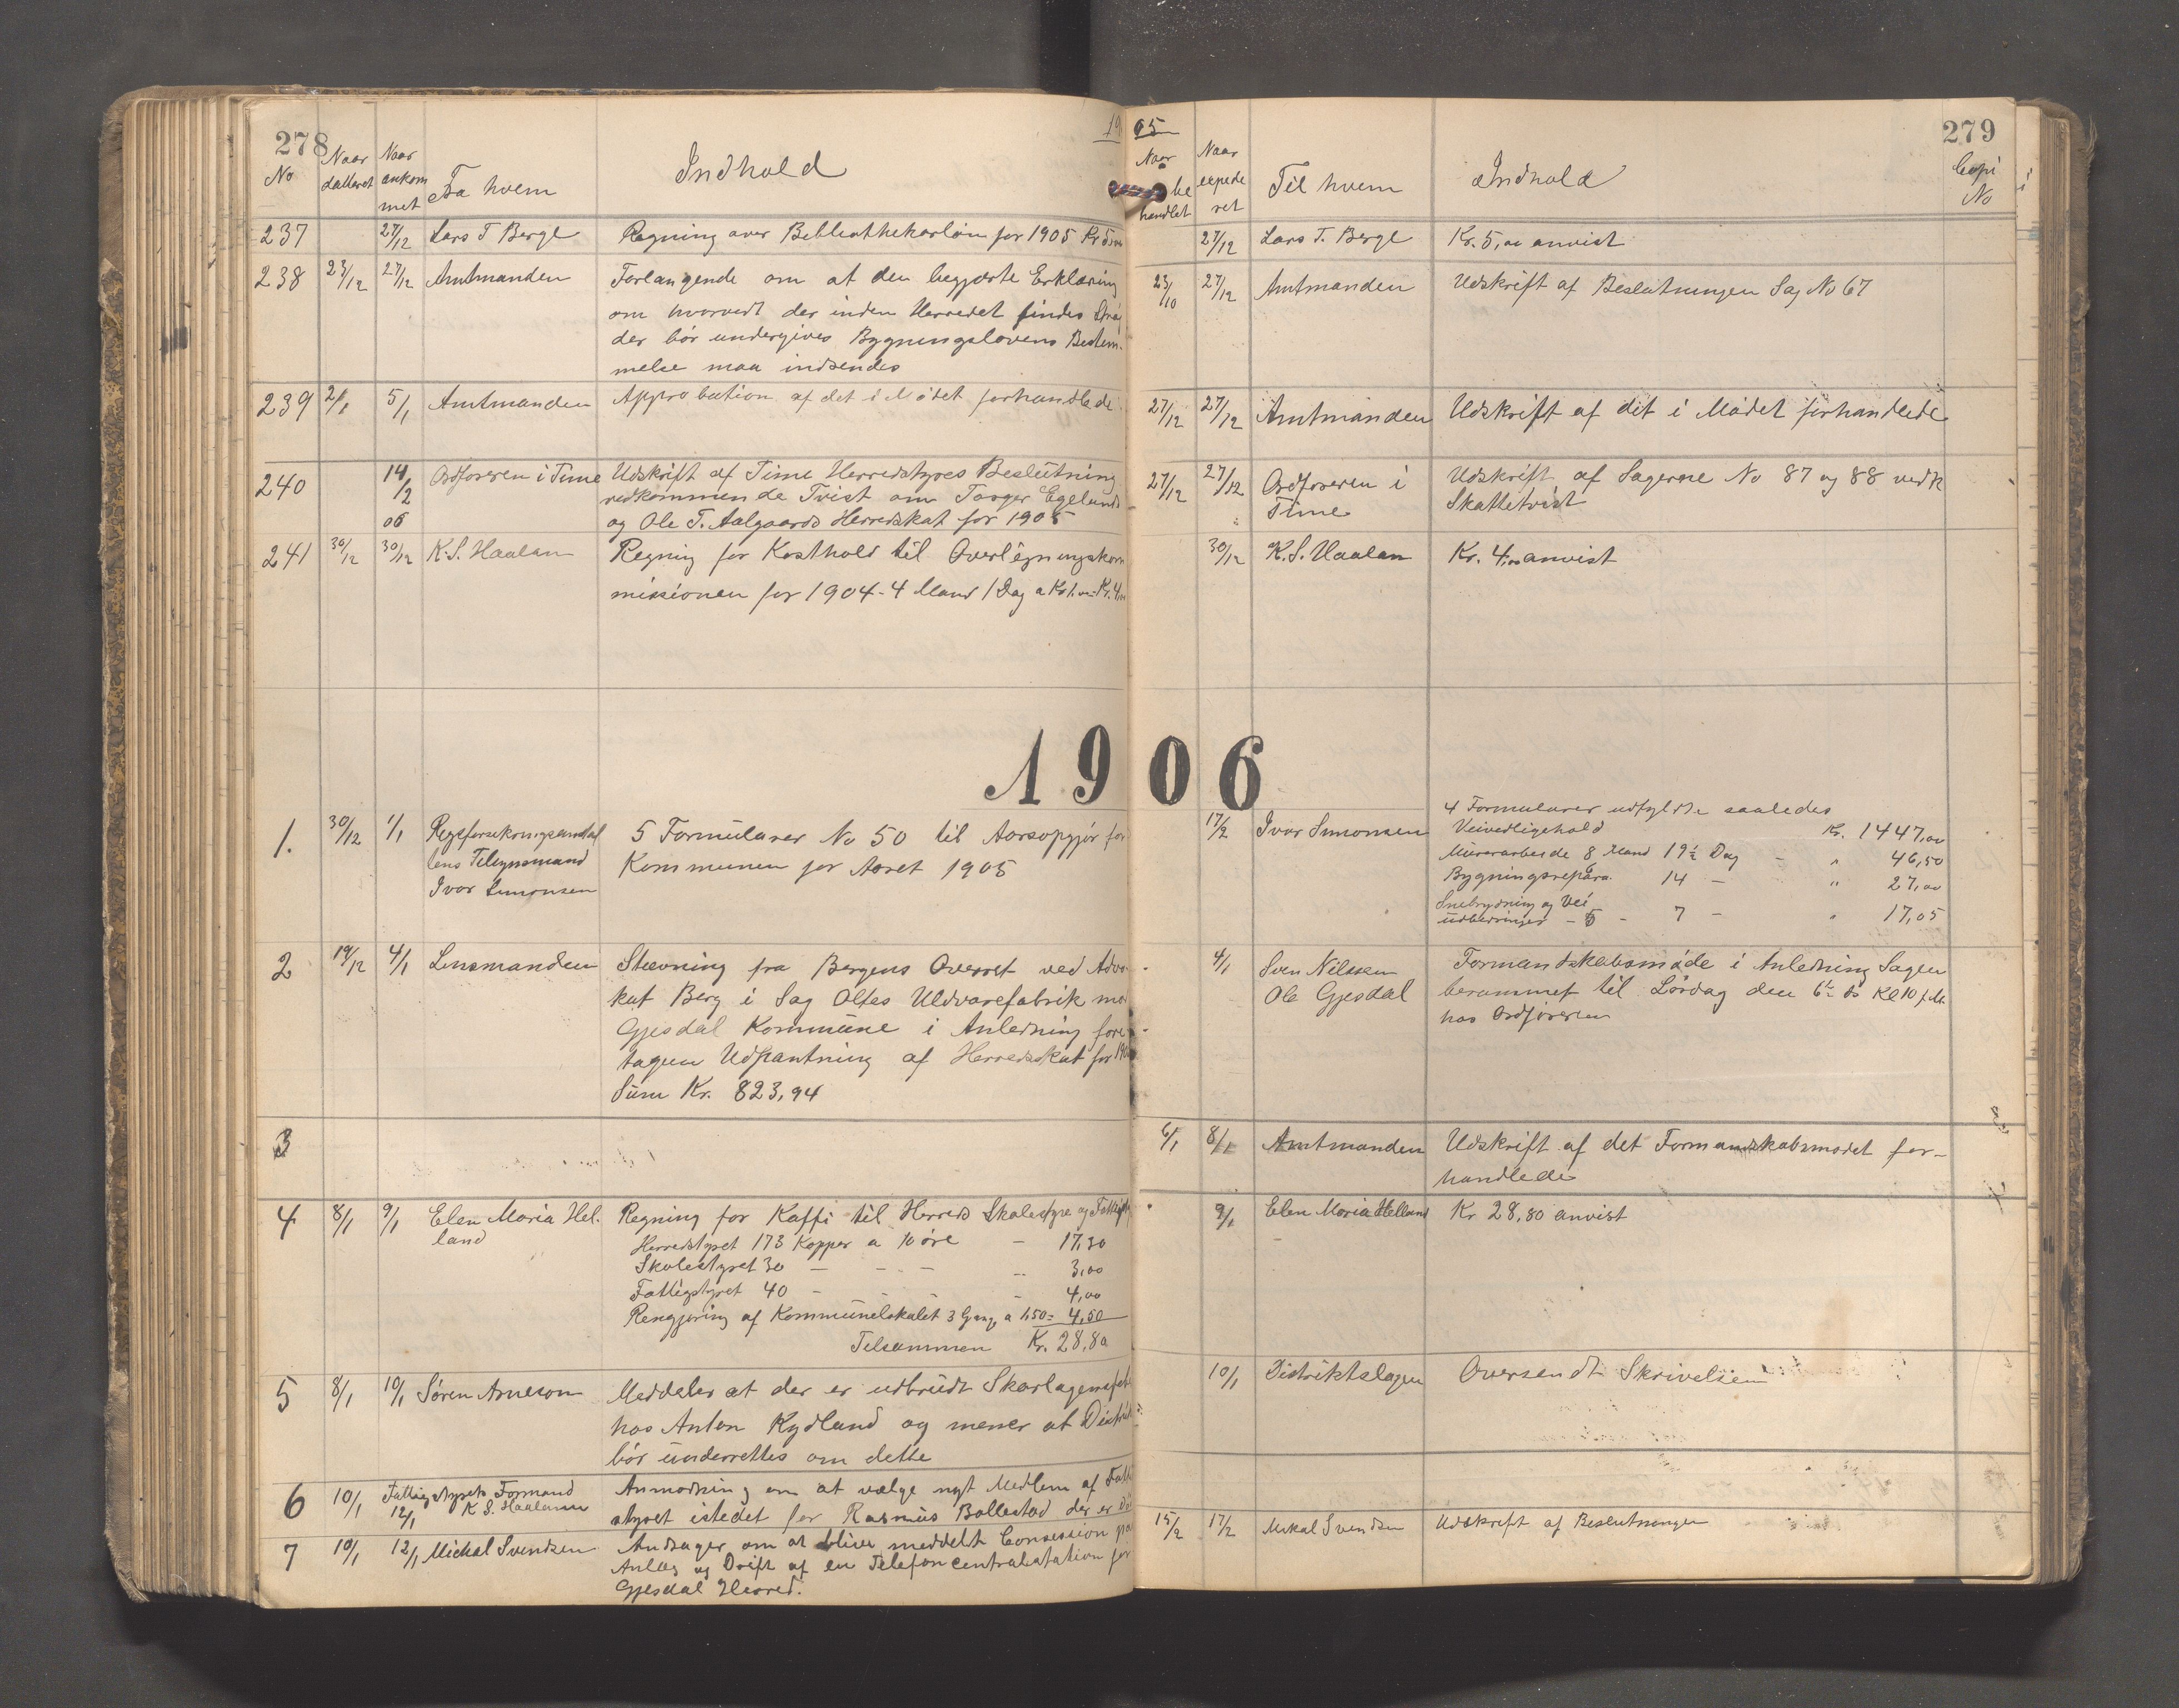 278
1905
279
No
Naar datteret
Naar ankommet
Fra hvem
Indhold
Naar behandlet
Naar expederet
Til hvem
Indhold
Copi No
237 27/12 Lars T Berge Regning over Bibliothekarløn for 1905 Kr 5,00
27/12 Lars T. Berge Kr. 5,00 anvist
238 23/12 27/12 Amtmanden Forlangende om at den begjærte Erklæring
om hvorvidt der inden Herredet findes Strøg
der bør undergives Bygningslovens Bestem-
melse maa indsendes
23/10 27/12 Amtmanden Udskrift af Beslutningen Sag No 67
239 2/1 5/1 Amtmanden Approbation af det i Mødet forhandlede
27/12 27/12 Amtmanden Udskrift af det i Mødet forhandlede
240 14/2 06 Ordføreren i Time Udskrift af Time Herredstyres Beslutning
vedkommende Tvist om Torger Egelands
og Ole T. Aalgaards Herredskat for 1905
27/12 27/12 Ordføreren i Time Udskrift af Sagerne No 87 og 88 vedk
Skattetvist
241 30/12 30/12 K. S. Haaland Regning for Kosthold til Overligningskom
missionen for 1904 - 4 Mand 1 Dag a Kr 1.00 = Kr. 4,00
30/12 K. S. Haaland Kr. 4,00 anvist
1906
1. 30/12 1/1 Rigsforsekringsanstal
tens Tilsynsmand
Ivar Simonsen
5 Formularer No 50 til Aarsopgjør for
Kommunen for Aaret 1905
17/2 Ivar Simonsen
4 Formularer udfyldte saaledes
Veivedligehold Kr. 1447,00
Murerarbeide 8 Mand 19½ Dag - " 46,50
Bygningsrepara. 14 - " 27,00
Snebrydning og Vei
udbedringer - 5 - 7 - " 17,05
2 19/12 4/1 Lensmanden Stævning fra Bergens Overret ved Advo-
kat Berg i Sag Olfes Uldvarefabrik mod
Gjesdal Kommune i Anledning fore
tagen Udpantning af Herredsskat for
Sum Kr. 823,94
4/1 Sven Nilssen
Ole Gjesdal
Formandskabsmøde i Anledning Sagen
berammet til Lørdag den 6te ds Kl 10 f.M.
hos Ordføreren
3
6/1 8/1 Amtmanden Udskrift af det Formandskabsmødet for-
handlede
4 8/1 9/1 Elen Maria Hel-
land
Regning for Kaffi til Herreds Skolestyre og Fattigst
Herredstyret 173 Kopper a 10 øre - 17,30
Skolestyret 30 - - - 3,00
Fattigstyret 40 - - - 4,00
Rengjøring af Kommunelokalet 3 Gang a 1,50 = 4,50
Tilsammen Kr. 28,80
9/1 Elen Maria Helland Kr 28,80 anvist
5 8/1 10/1 Søren Arneson Meddeler at der er udbrudt Skarlagensfeb
hos Anton Kydland og mener at Distrikt
bør underrettes om dette
10/1 Distriktslægen Oversendt Skrivelsen
6 10/1 12/1 Fattigstyrets Formand
K S. Haaland
Anmodning om at vælge nyt Medlem af Fatti
styret istedet for Rasmus Bollestad der er dø
7 10/1 12/1 Michal Svendsen Andrager om at blive meddelt Consession paa
Anlæg og Drift af en Telefoncentralstation for
Gjesdal Herred.
15/2 17/2 Mikal Svendsen Udskrift af Beslutningen